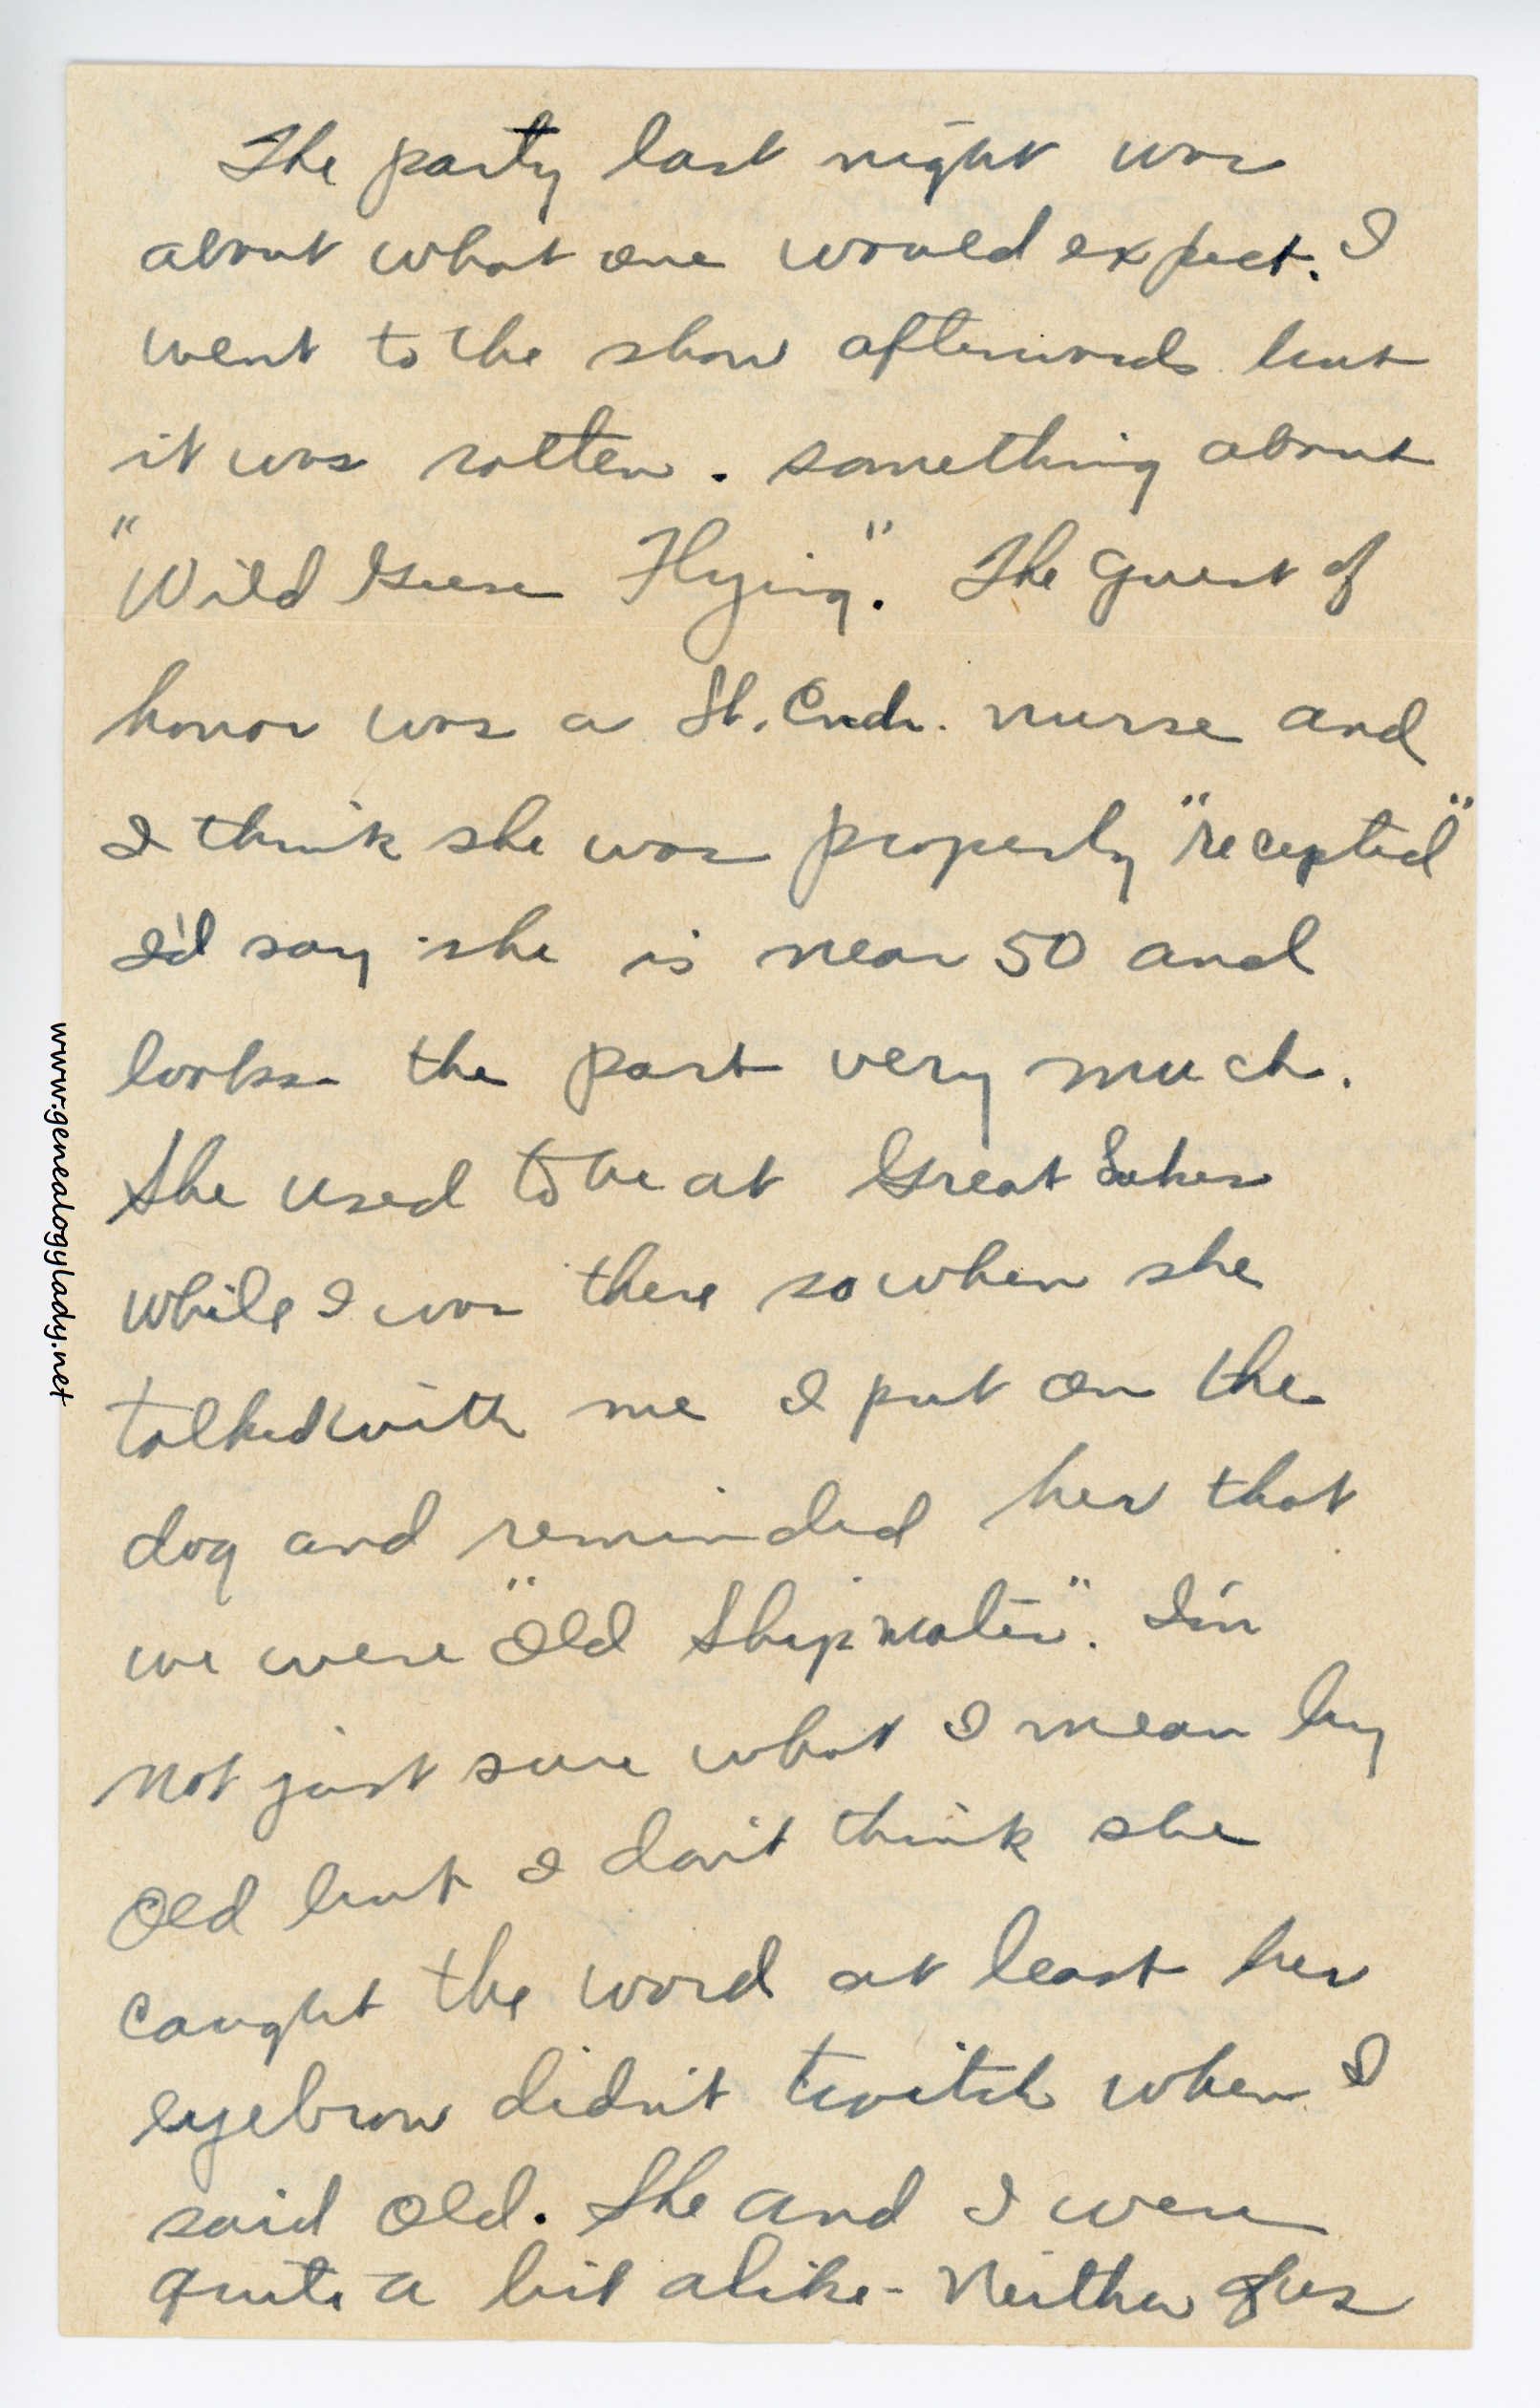 The party last night was
about what one would expect. I
went to the show afterwards but
it was rotten. something about
"Wild Geese Flying". The guest of
honor was a Lt. Cmdr. nurse and
I think she was properly "recepted"
I'd say she is near 50 and
looks the part very much.
She used to be at Great Lakes
while I was there so when she
talked with me I put on the
dog and reminded her that
we were "old Shipmates". I'm
not just sure what I mean by
old but I don't think she
caught the word at least her
eyebrow didn't twitch when I
said old. She and I were
quite a bit alike - Neither of us
www.genealogylady.net